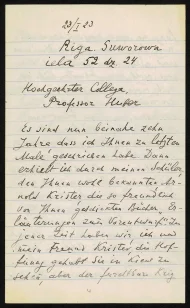 23/I 23
Riga. Suworowa
iela 52 dz. 24
Hochgeehrter College,
Professor Huber
Es sind nun beinahe zehn
Jahre dass ich Ihnen zu letzten
Male geschrieben habe. Dann
erhielt ich durch meinen Schüler,
den Ihnen wohl bekannten Ar-
nold Krister die so freundlich
von Ihnen geschickten Bilder. Er-
läuterungen zur Vorentwurf. In
jener Zeit haben wir, ich und
mein Freund Krister, die Hof-
fnung gehabt Sie in Kiew zu
sehen, aber der furchtbare Krieg